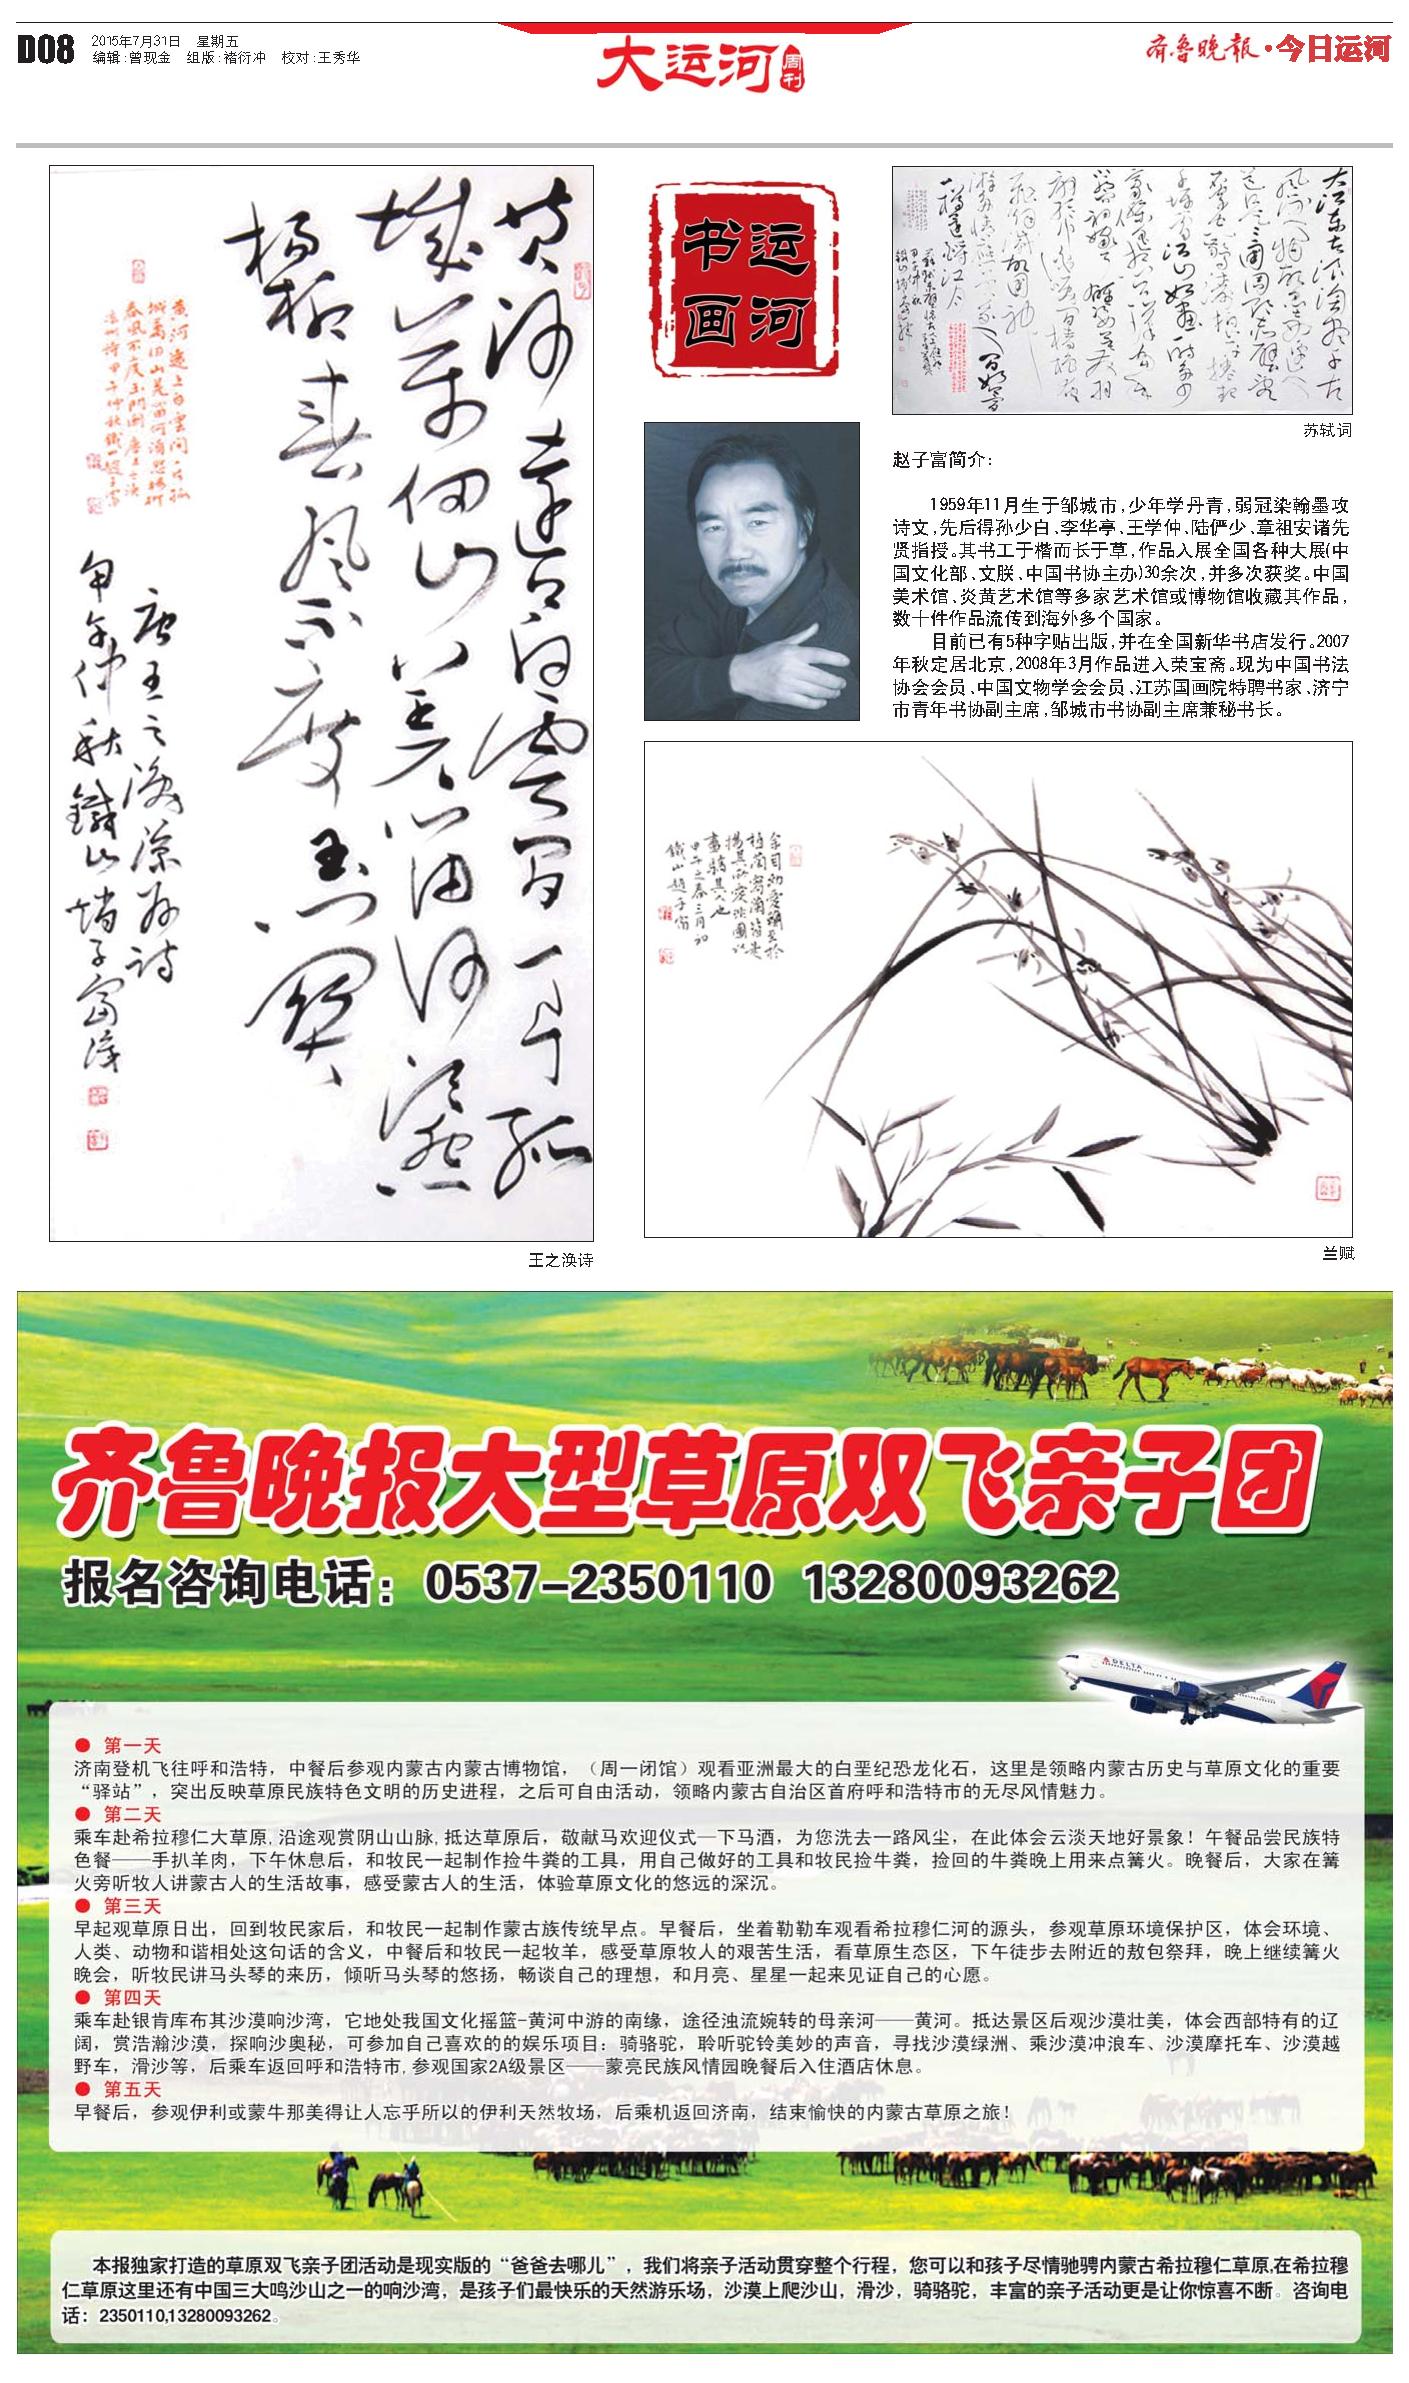 D08
2015年7月31日 星期五
编辑:曾现金 组版:褚衍冲 校对:王秀华
大运河
周刊
齐鲁晚报·今日运河
黄河远上白云间一片孤
城万仞山羌笛何须怨
杨柳春风不度玉门关
唐王之涣凉州诗
甲午仲秋铁山赵子富
王之涣诗
运河
书画
苏轼词
赵子富简介:
1959年11月生于邹城市,少年学丹青,弱冠染翰墨攻
诗文,先后得孙少白、李华亭、王学仲、陆俨少、章祖安诸先
贤指授。其书工于楷而长于草,作品入展全国各种大展(中
国文化部、文联、中国书协主办)30余次,并多次获奖。中国
美术馆、炎黄艺术馆等多家艺术馆或博物馆收藏其作品,
数十件作品流传到海外多个国家。
目前已有5种字贴出版,并在全国新华书店发行。2007
年秋定居北京,2008年3月作品进入荣宝斋。现为中国书法
协会会员、中国文物学会会员、江苏国画院特聘书家、济宁
市青年书协副主席,邹城市书协副主席兼秘书长。
兰赋
齐鲁晚报大型草原双飞亲子团
报名咨询电话：0537-2350110 13280093262
DELTA
● 第一天
济南登机飞往呼和浩特，中餐后参观内蒙古内蒙古博物馆，（周一闭馆）观看亚洲最大的白垩纪恐龙化石，这里是领略内蒙古历史与草原文化的重要
“驿站”，突出反映草原民族特色文明的历史进程，之后可自由活动，领略内蒙古自治区首府呼和浩特市的无尽风情魅力。
● 第二天
乘车赴希拉穆仁大草原,沿途观赏阴山山脉,抵达草原后，敬献马欢迎仪式—下马酒，为您洗去一路风尘，在此体会云淡天地好景象！午餐品尝民族特
色餐——手扒羊肉，下午休息后，和牧民一起制作捡牛粪的工具，用自己做好的工具和牧民捡牛粪，捡回的牛粪晚上用来点篝火。晚餐后，大家在篝
火旁听牧人讲蒙古人的生活故事，感受蒙古人的生活，体验草原文化的悠远的深沉。
● 第三天
早起观草原日出，回到牧民家后，和牧民一起制作蒙古族传统早点。早餐后，坐着勒勒车观看希拉穆仁河的源头，参观草原环境保护区，体会环境、
人类、动物和谐相处这句话的含义，中餐后和牧民一起牧羊，感受草原牧人的艰苦生活，看草原生态区，下午徒步去附近的敖包祭拜，晚上继续篝火
晚会，听牧民讲马头琴的来历，倾听马头琴的悠扬，畅谈自己的理想，和月亮、星星一起来见证自己的心愿。
● 第四天
乘车赴银肯库布其沙漠响沙湾，它地处我国文化摇篮-黄河中游的南缘，途径浊流婉转的母亲河——黄河。抵达景区后观沙漠壮美，体会西部特有的辽
阔，赏浩瀚沙漠，探响沙奥秘，可参加自己喜欢的的娱乐项目：骑骆驼，聆听驼铃美妙的声音，寻找沙漠绿洲、乘沙漠冲浪车、沙漠摩托车、沙漠越
野车，滑沙等，后乘车返回呼和浩特市,参观国家2A级景区——蒙亮民族风情园晚餐后入住酒店休息。
● 第五天
早餐后，参观伊利或蒙牛那美得让人忘乎所以的伊利天然牧场，后乘机返回济南，结束愉快的内蒙古草原之旅！
本报独家打造的草原双飞亲子团活动是现实版的“爸爸去哪儿”，我们将亲子活动贯穿整个行程，您可以和孩子尽情驰骋内蒙古希拉穆仁草原,在希拉穆
仁草原这里还有中国三大鸣沙山之一的响沙湾，是孩子们最快乐的天然游乐场，沙漠上爬沙山，滑沙，骑骆驼，丰富的亲子活动更是让你惊喜不断。咨询电
话：2350110,13280093262。